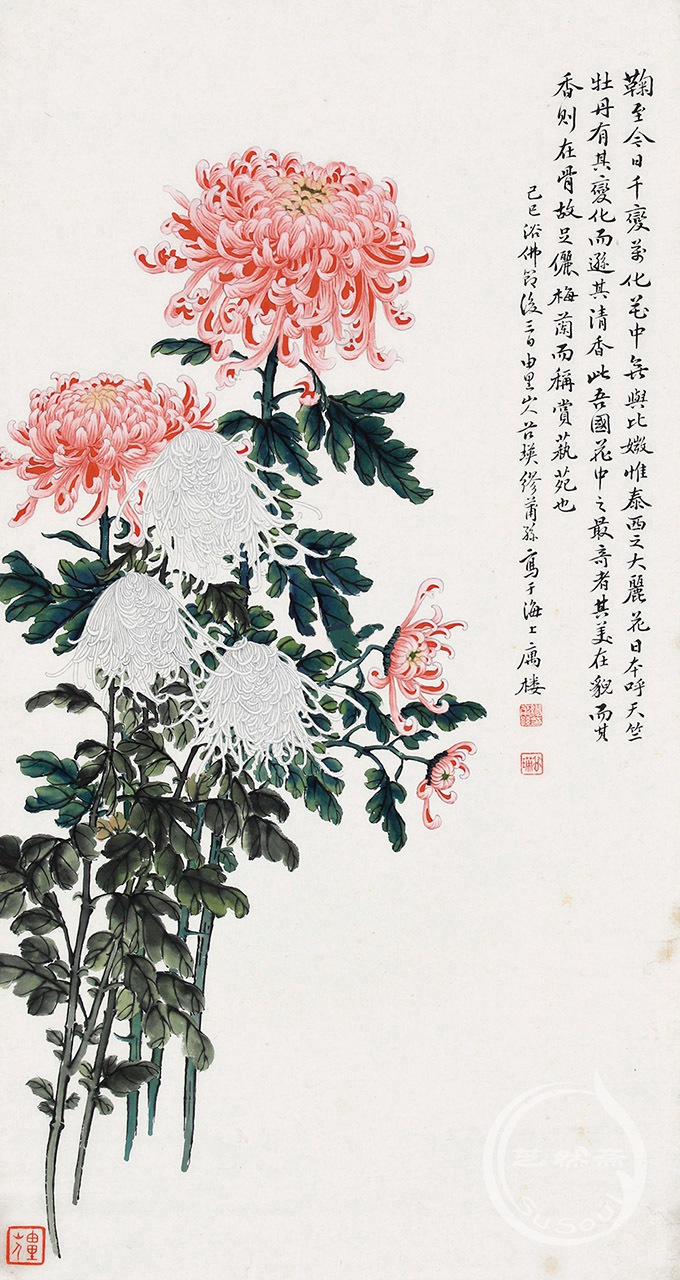 鞠至今日千變萬化花中無與比媺惟泰西之大麗花日本呼天竺
牡丹有其變化而遜其清香此吾國花中之最奇者其美在貌而其
香則在骨故足儷梅蘭而稱賞蓺苑也
己巳浴佛節後三日由里山人苕瑛繆莆孫寫于海上寓樓
由里
芝然斋
SuSoul